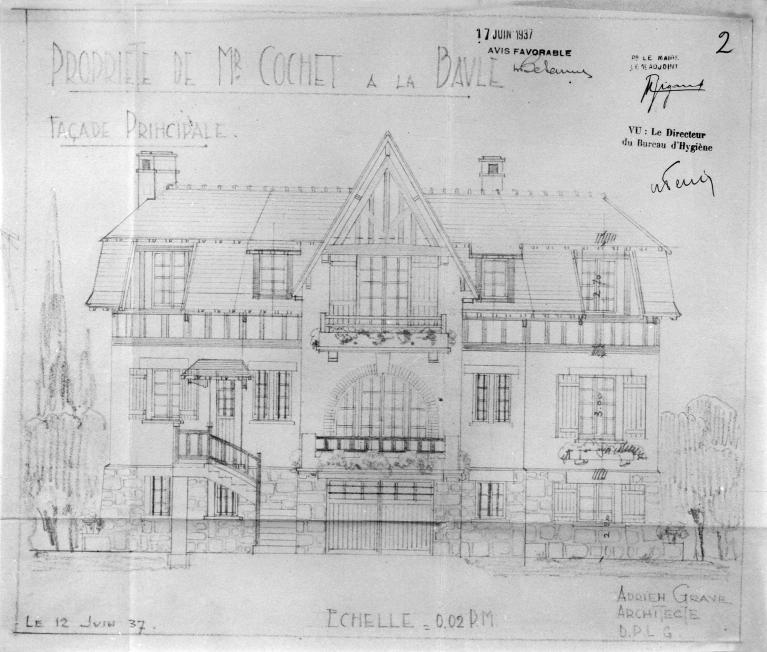 PROPRIETE DE MR COCHET A LA BAULE
FAÇADE PRINCIPALE.
17 JUIN 1937
AVIS FAVORABLE
2
Pr LE MAIRE
VU : Le Directeur
du Bureau d'Hygiène
2.70
3.00
LE 12 JUIN 37.
ECHELLE = 0,02 P.M.
ADRIEN GRAVE
ARCHITECTE
D.P.L.G.